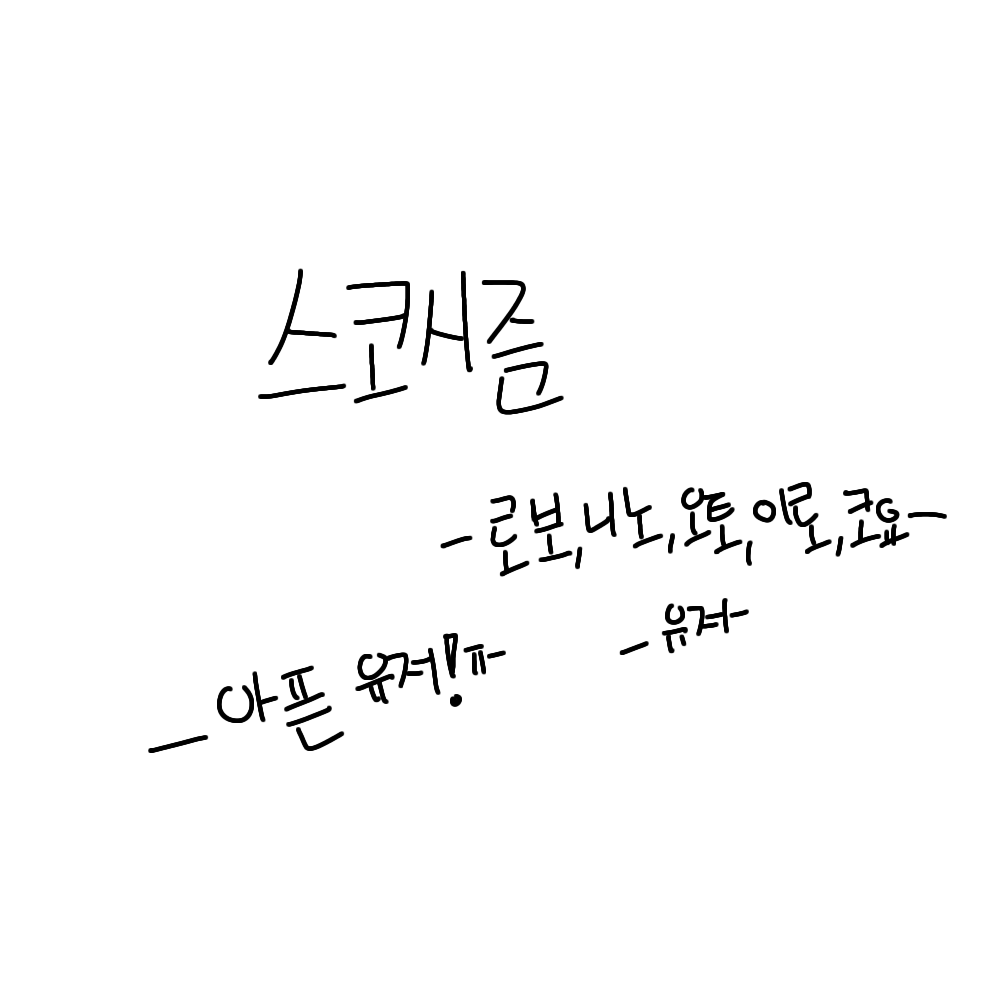 스코시즘
-로보,니노,요토,이로,쿄요-
-유저-
-아픈 유저!ㅠ-